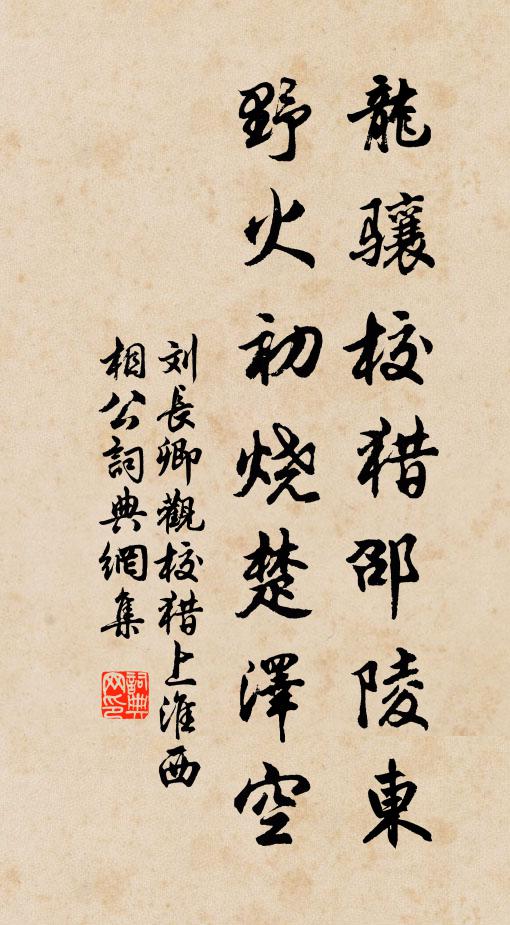 龍骧校猎邵陵東
野火初烧楚澤空
刘長卿觀校猎上淮西
相公詞典網集
詞典网印